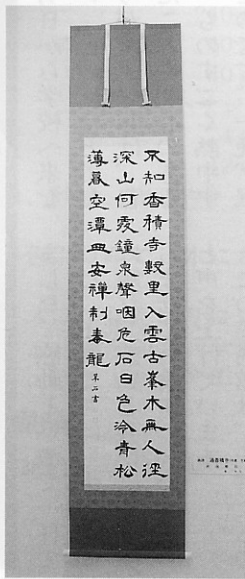 不知香積寺數里入雲古峯木無人徑
深山何處鐘泉聲咽危石日色冷青松
薄暮空潭曲安禪制毒龍
書